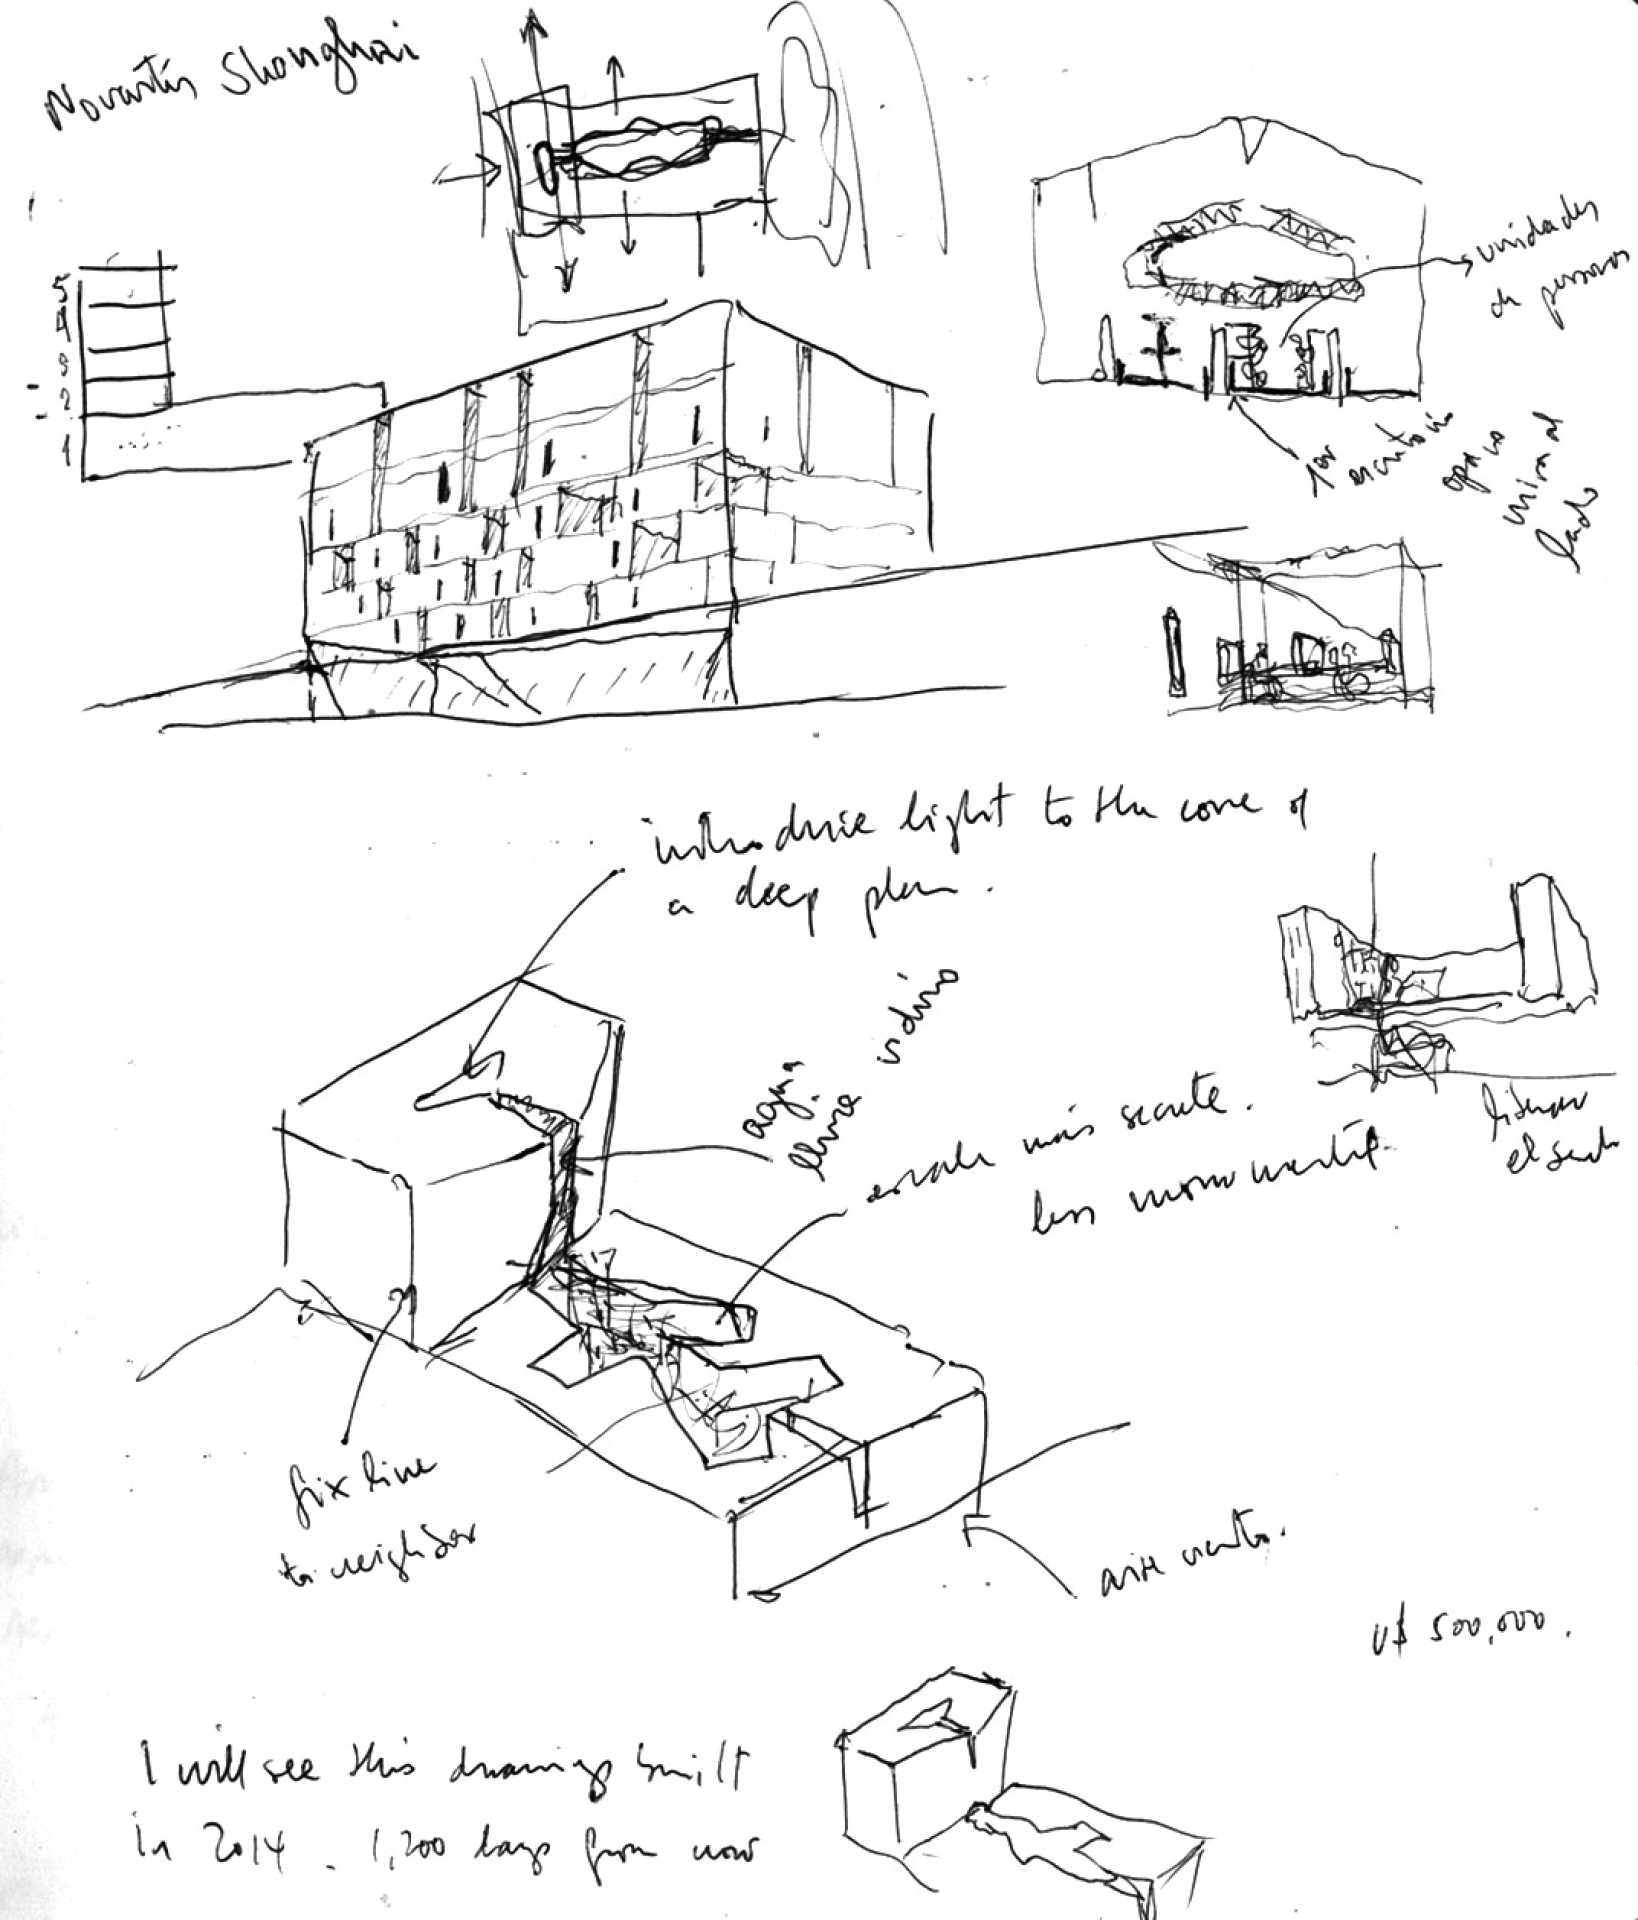 Novartis Shanghai
5
4
3
2
1
unidades
de personas
1er
escritorio
opaco
mira al
lado
introduce light to the core of
a deep plan.
agua
lluvia
vidrio
escala más secreta.
less monumental
el suelo
fix line
to neighbor
U$ 500,000.
I will see this drawing built
in 2014. 1,200 days from now